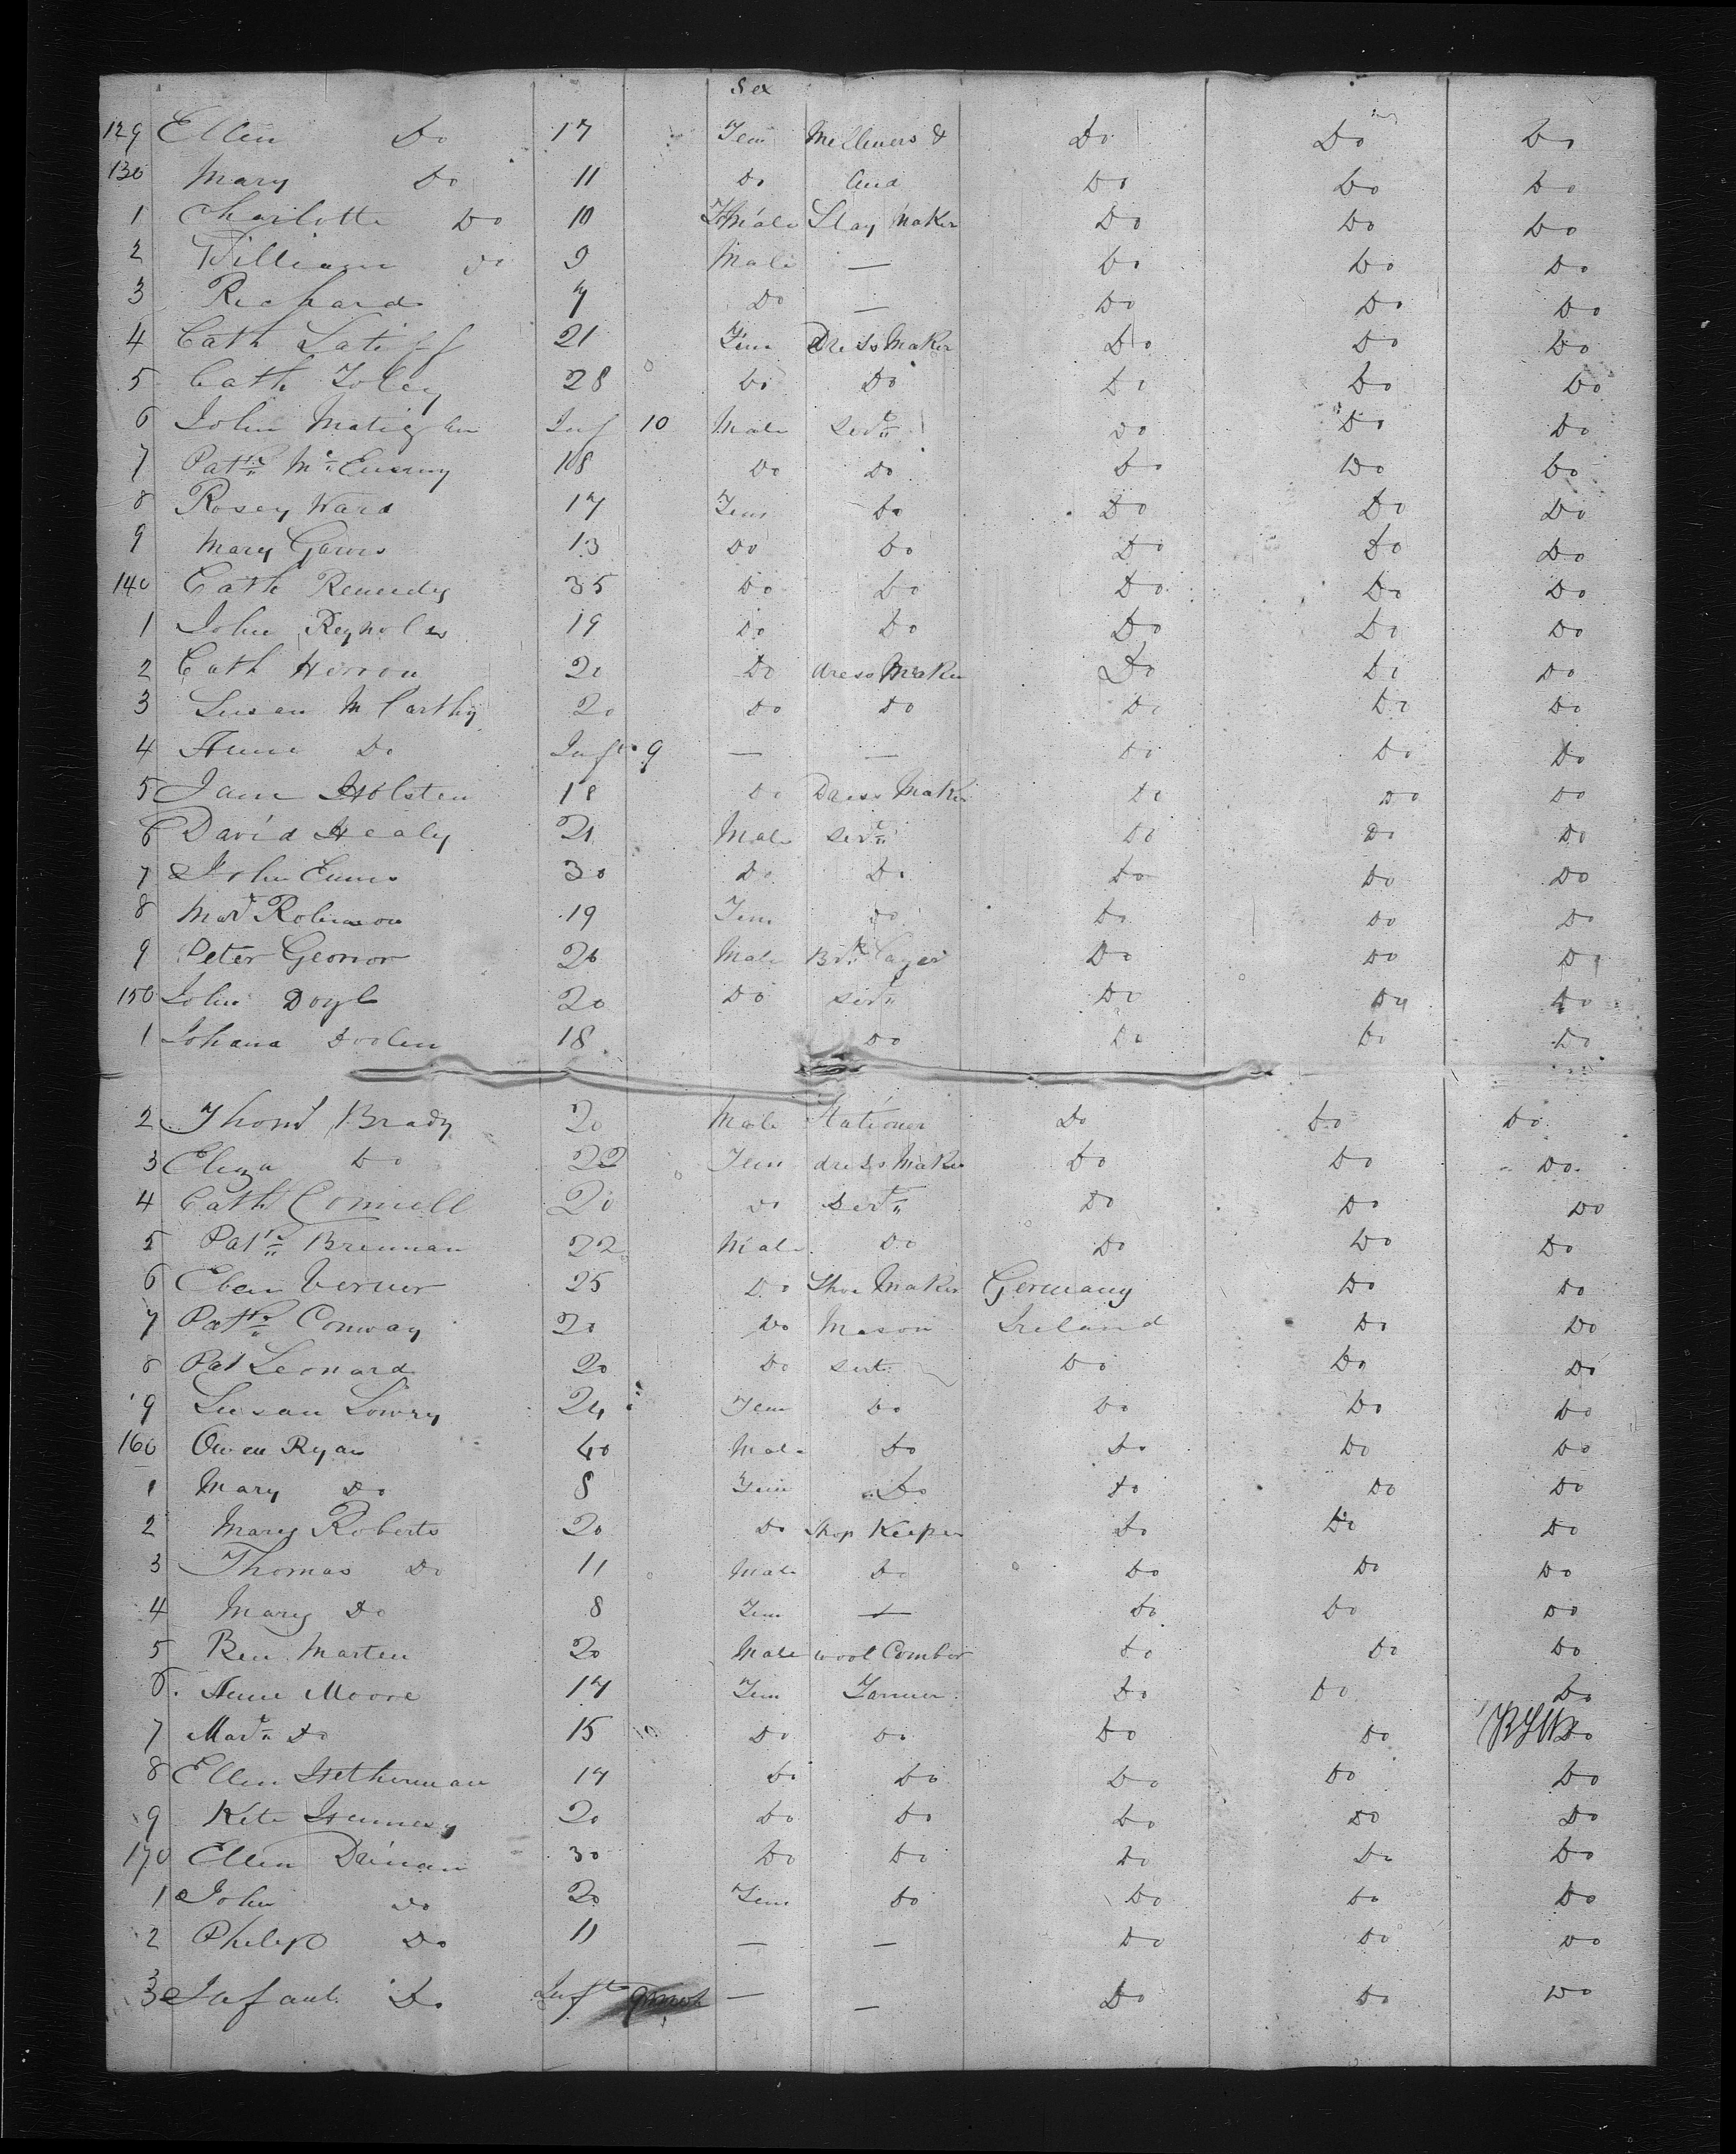 Sex
129 Ellen Do 17 Fem Melleners & Do Do Do
130 Mary Do 11 Do And Do Do Do
1 Charlotte Do 10 Female Stay Maker Do Do Do
2 William Do 9 Male — Do Do Do
3 Richard 7 Do — Do Do Do
4 Cath Latiff 21 Fem Dress Maker Do Do Do
5 Cath Foley 28 Do Do Do Do Do
6 John Matighn Inf 10 Male Servt Do Do Do
7 Patk McEneny 18 Do Do Do Do Do
8 Rosey Ward 17 Fem Do Do Do Do
9 Mary Garvs 13 Do Do Do Do Do
140 Cath Kenedy 35 Do Do Do Do Do
1 John Reynolds 19 Do Do Do Do Do
2 Cath Herron 20 Do dress Maker Do Do Do
3 Susan McCarthy 20 Do Do Do Do Do
4 Anne Do Inft 9 — — Do Do Do
5 Jane Holsten 18 Do Dress Maker Do Do Do
6 David Healy 21 Male Servt Do Do Do
7 John Ennes 30 Do Do Do Do Do
8 Mart Robinson 19 Fem Do Do Do Do
9 Peter Geonor 26 Male Brk Layer Do Do Do
150 John Doyle 20 Do servt Do Do Do
1 Johana Doolen 18 Do Do Do Do
2 Thoms Brady 20 Male Stationer Do Do Do
3 Eliza Do 22 Fem dress Maker Do Do Do
4 Cath Connell 20 Do servt Do Do Do
5 Patk Brennan 22 Male Do Do Do Do
6 Eben Verner 25 Do Shoe Maker Germany Do Do
7 Patk Conway 20 Do Mason Ireland Do Do
8 Pat Leonard 20 Do servt Do Do Do
9 Susan Lowry 24 Fem Do Do Do Do
160 Owen Ryan 40 Male Do Do Do Do
1 Mary Do 8 Fem Do Do Do Do
2 Mary Roberts 20 Do Shop Keeper Do Do Do
3 Thomas Do 11 Male Do Do Do Do
4 Mary Do 8 Fem — Do Do Do
5 Ben Marten 20 Male wool Combor Do Do Do
6 Anne Moore 17 Fem Farmer Do Do Do
7 Mart Do 15 Do Do Do Do Do
8 Ellen Hetherman 17 Do Do Do Do Do
9 Kite Hennesy 20 Do Do Do Do Do
170 Ellen Dainan 30 Do Do Do Do Do
1 John Do 20 Fem Do Do Do Do
2 Philip Do 11 — — Do Do Do
3 Infant Do Inft 9 moh — — Do Do Do